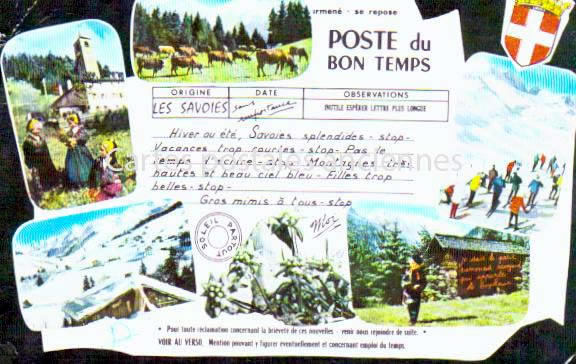 armené - se repose
POSTE du
BON TEMPS
ORIGINE DATE OBSERVATIONS
LES SAVOIES sans importance INUTILE ESPÉRER LETTRE PLUS LONGUE
Hiver ou été, Savoies splendides - stop -
Vacances trop courtes - stop - Pas le
temps d'écrire - stop - Montagnes très
hautes et beau ciel bleu - Filles trop
belles - stop -
Gros mimis à tous - stop
Moi
SOLEIL PARTOUT
• Pour toute réclamation concernant la brièveté de ces nouvelles - venir nous rejoindre de suite. •
VOIR AU VERSO. Mention pouvant y figurer éventuellement et concernant emploi du temps.